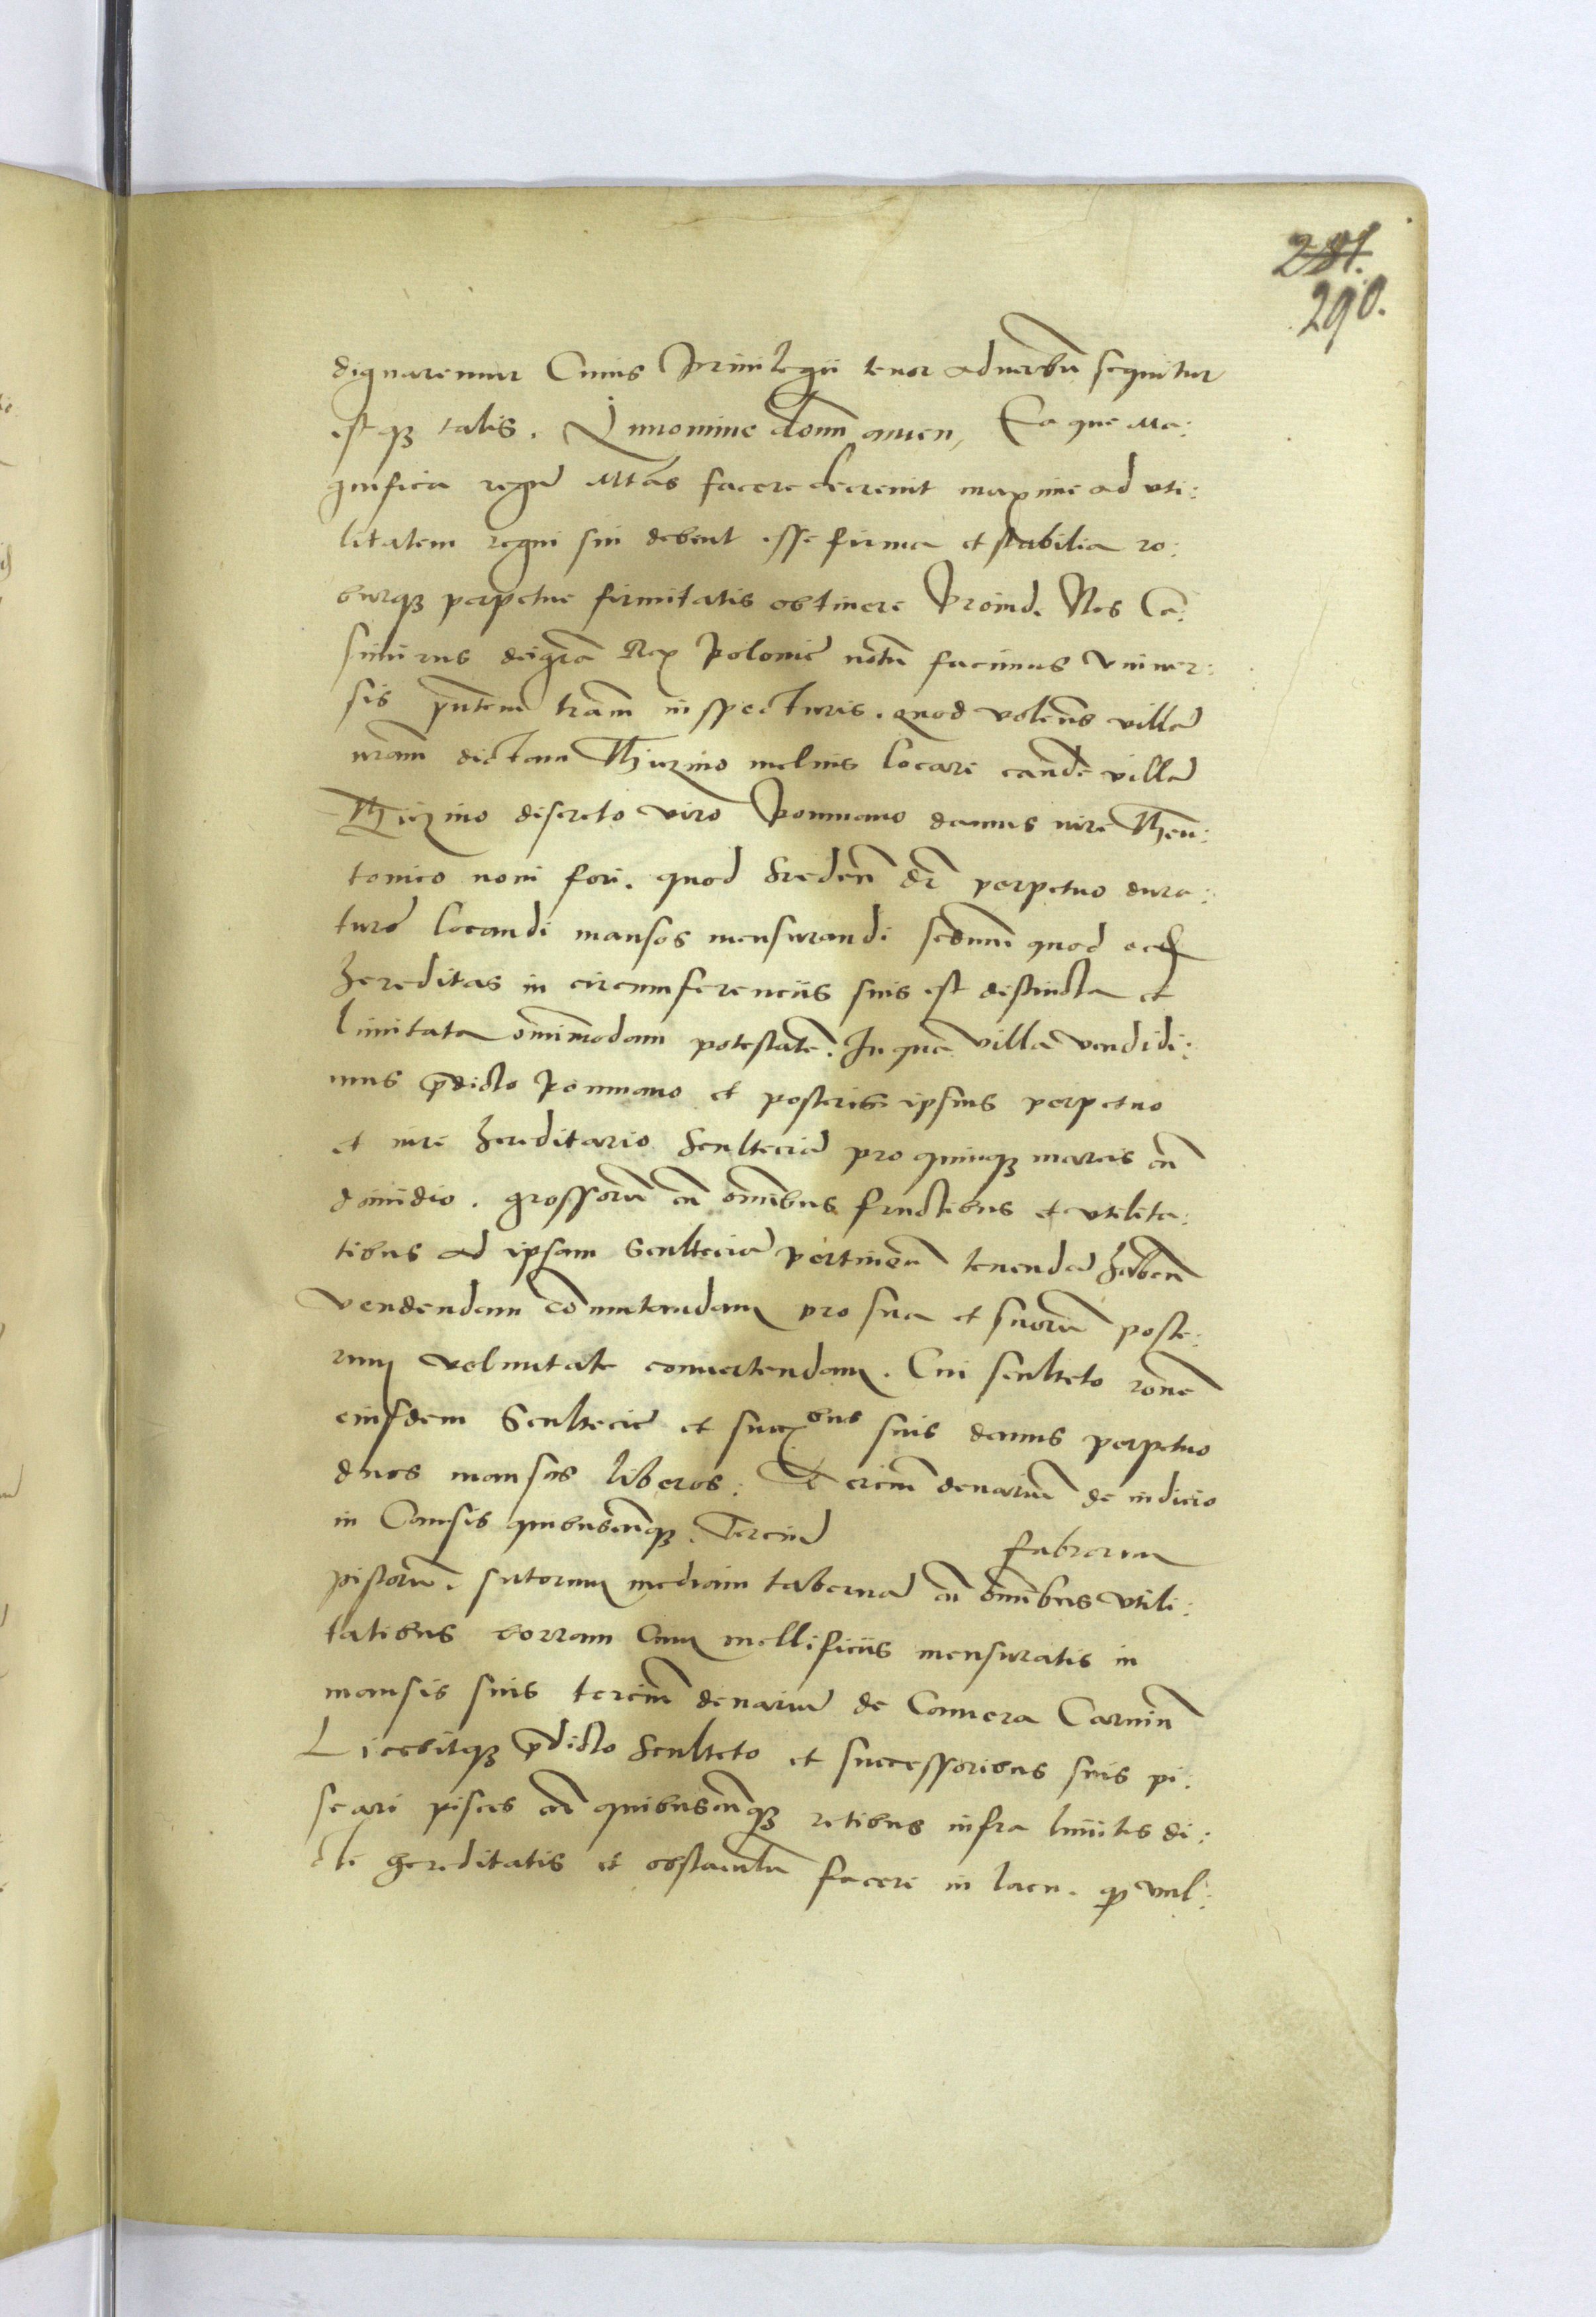 281.
290.
dignaremur Cuius Privilegii tenor adverbũ sequitur
estqꝫ talis. In nomine domĩ amen, Ea que Ma:
gnifica regũ Mtãs facere decrevit maxime ad uti:
litatem regni sui debent esse firma et stabilia ro:
burqꝫ perpetue firmitatis obtinere Proinde Nos Ca:
simirus dei grã Rex Polonie notũ facimus Univer:
sis pñtem lrãm inspecturis. quod volens villã
nrãm dictam melius locare eandẽ villã
discreto viro Pommano damus iure Theu:
tonico novi fori. quod Sredeñ dr̃ perpetuo dura:
turo locandi mansos mensurandi secdum quod
hereditas in circumferenciis suis est distincta et
limitata om̃imodam potestatẽ. In qua villa vendidi:
mus p̃dicto Pommano et posteris ipsius perpetuo
et iure hereditario Scultetiã pro quinqꝫ marcis cũ
dimidio. grossorũ cũ om̃ibus fructibus et utilita:
tibus ad ipsam Scultetiã pertineñ tenendã habeñ
vendendam cõmutandam pro sua et suorũ poste:
rum voluntate convertendam. Cui sculteto rone
eiusdem Scultecie et succ̃obus suis damus perpetuo
duos mansos liberos. Terciũ denariũ de iudicio
in Causis quibuscũqꝫ. Terciũ fabrorum
pistorũ. sutorum mediam tabernã cũ om̃ibus utili:
tatibus borram Cum mellificiis mensuratis in
mansis suis terciũ denariũ de Camera Carniũ
Licebitqꝫ p̃dicto Sculteto et successoribus suis pi:
scari pisces cũ quibuscũqꝫ retibus infra limites di:
cte hereditatis et obstaculũ facere in lacu. qꝫ vul: